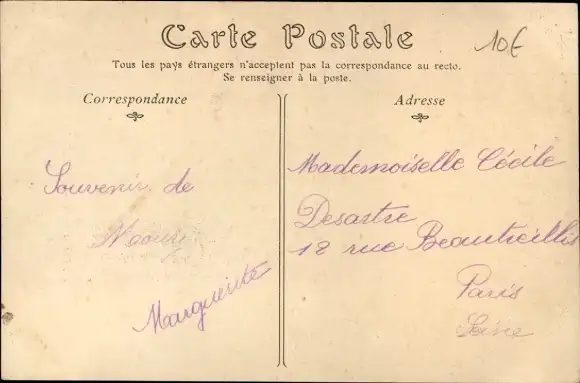 Carte Postale
10€
Tous les pays étrangers n'acceptent pas la correspondance au recto.
Se renseigner à la poste.
Correspondance
Adresse
Souvenir de
Marguerite
Mademoiselle Cécile
Desartre
12 rue Beautreillis
Paris
Seine